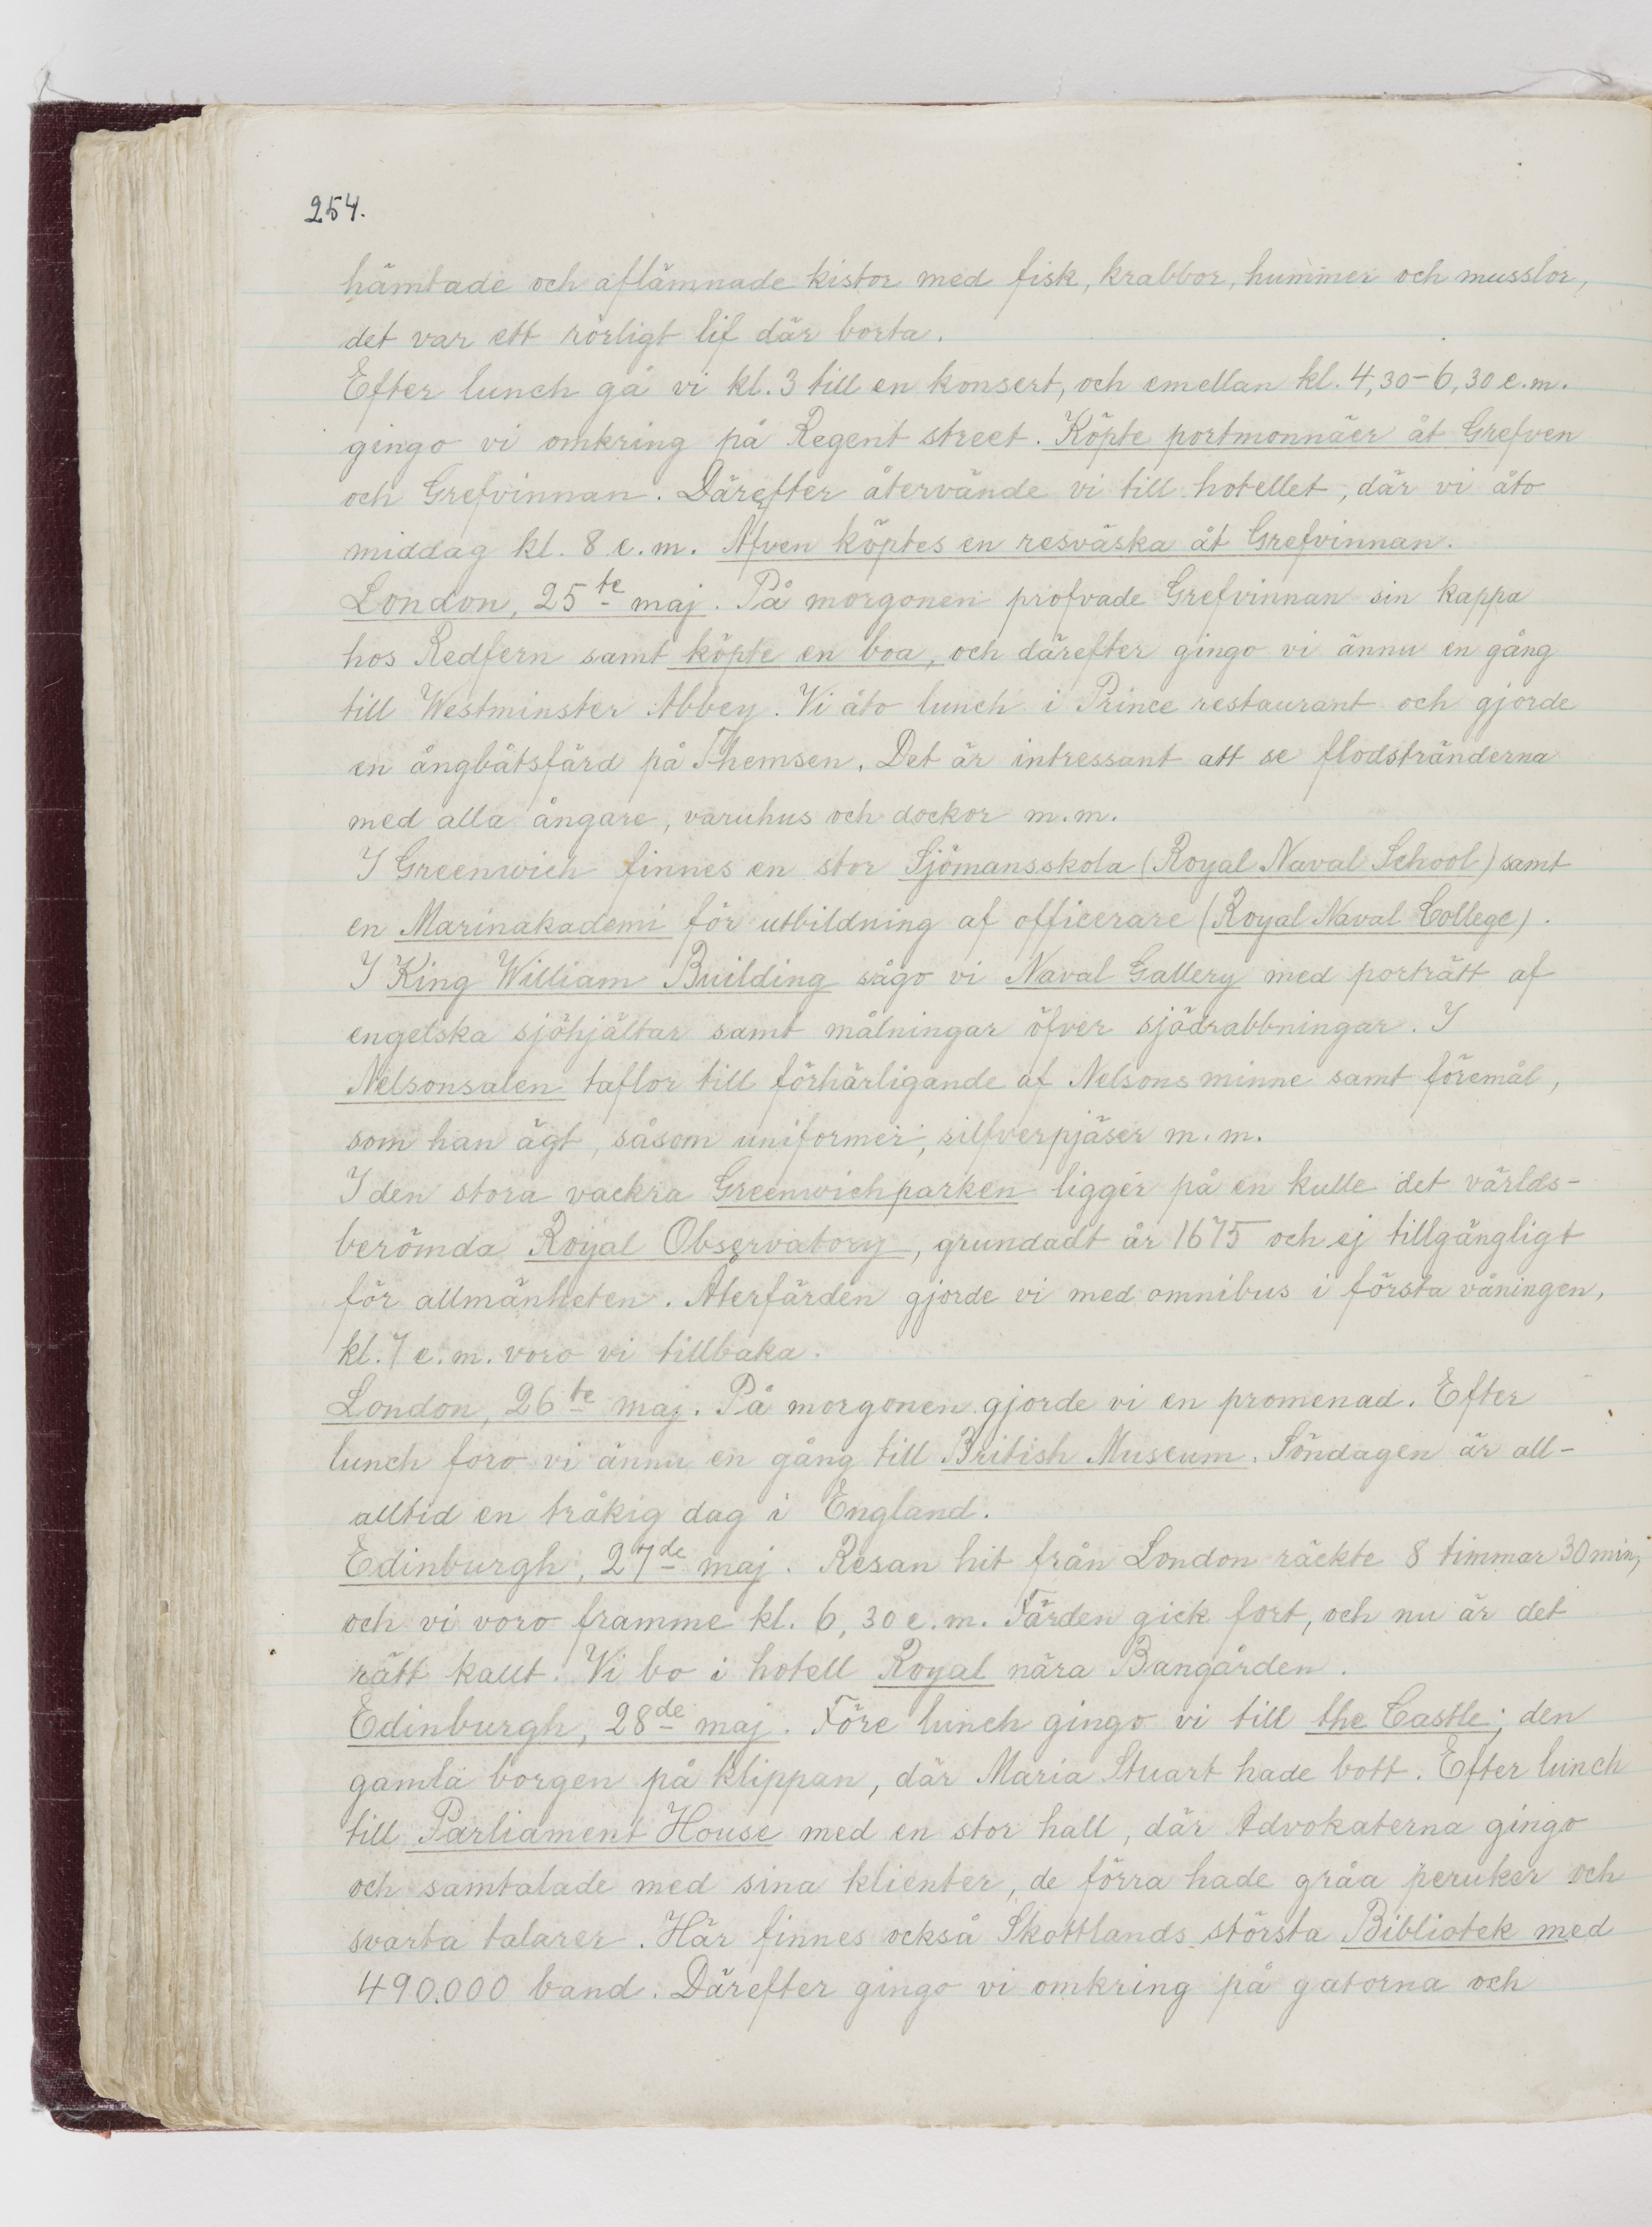 254.
hämtade och aflämnade kistor med fisk, krabbor, hummer och musslor,
det var ett rörligt lif där borta.
Efter lunch gå vi kl. 3 till en konsert, och emellan kl. 4,30–6,30 e.m.
gingo vi omkring på Regent street. Köpte portmonnäer åt Grefven
och Grefvinnan. Därefter återvände vi till hotellet, där vi åto
middag kl. 8 e.m. Äfven köptes en resväska åt Grefvinnan.
London, 25te maj. På morgonen profvade Grefvinnan sin kappa
hos Redfern samt köpte en boa, och därefter gingo vi ännu en gång
till Westminster Abbey. Vi åto lunch i Prince restaurant och gjorde
en ångbåtsfärd på Themsen. Det är intressant att se flodstränderna
med alla ångare, varuhus och dockor m.m.
I Greenwich finnes en stor Sjömansskola (Royal Naval School) samt
en Marinakademi för utbildning af officerare (Royal Naval College).
I King William Building sågo vi Naval Gallery med porträtt af
engelska sjöhjältar samt målningar öfver sjödrabbningar. I
Nelsonsalen taflor till förhärligande af Nelsons minne samt föremål,
som han ägt, såsom uniformer, silfverpjäser m.m.
I den stora vackra Greenwichparken ligger på en kulle det världs-
berömda Royal Observatory, grundadt år 1675 och ej tillgängligt
för allmänheten. Återfärden gjorde vi med omnibus i första våningen,
kl. 7 e.m. voro vi tillbaka.
London, 26te maj. På morgonen gjorde vi en promenad. Efter
lunch foro vi ännu en gång till British Museum. Söndagen är all-
alltid en tråkig dag i England.
Edinburgh, 27de maj. Resan hit från London räckte 8 timmar 30 min,
och vi voro framme kl. 6,30 e.m. Färden gick fort, och nu är det
rätt kallt! Vi bo i hotell Royal nära Bangården.
Edinburgh, 28de maj. Före lunch gingo vi till the Castle; den
gamla borgen på klippan, där Maria Stuart hade bott. Efter lunch
till Parliament House med en stor hall, där Advokaterna gingo
och samtalade med sina klienter, de förra hade gråa peruker och
svarta talarer. Här finnes också Skottlands största Bibliotek med
490.000 band. Därefter gingo vi omkring på gatorna och